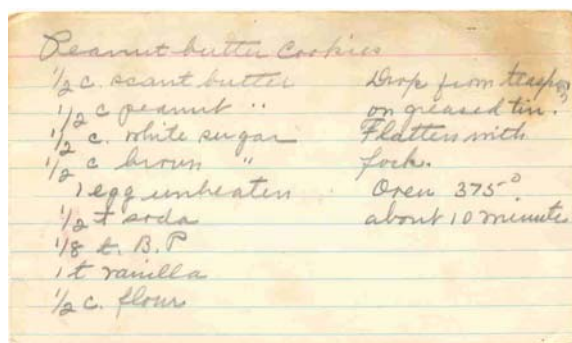 Peanut butter cookies
1/2 c. scant butter
1/2 c peanut "
1/2 c. white sugar
1/2 c brown "
1 egg unbeaten
1/2 t soda
1/8 t. B.P
1 t vanilla
1/2 c. flour
Drop from teaspoon
on greased tin.
Flatten with
fork.
Oven 375°
about 10 minutes